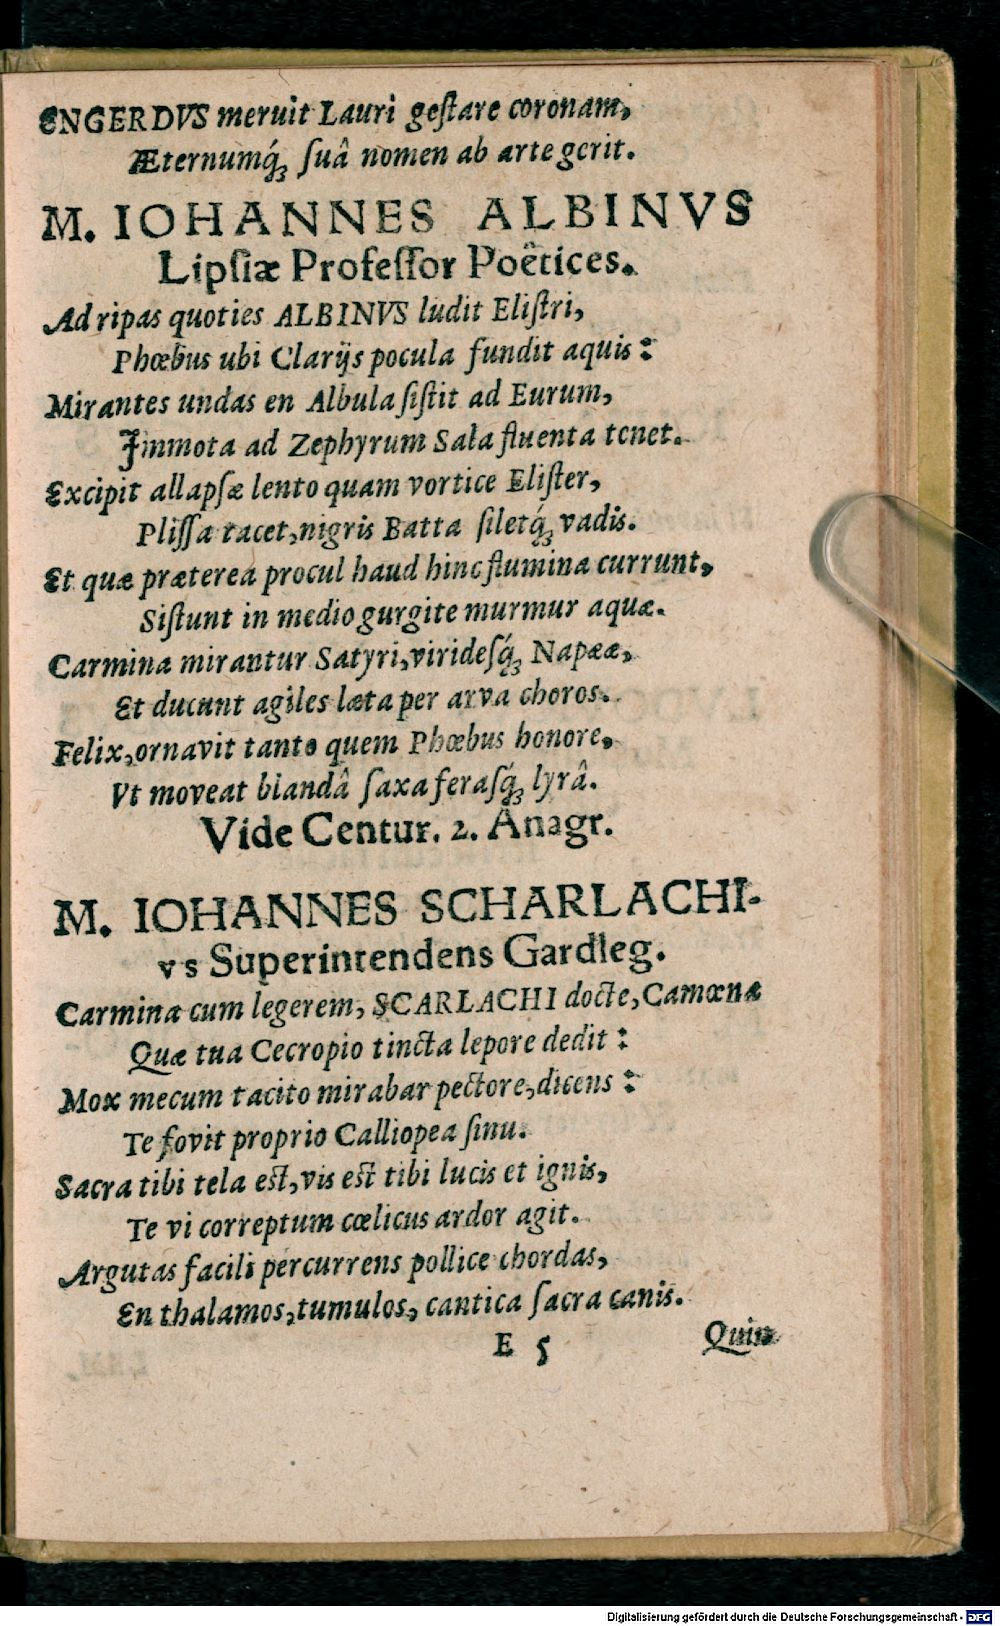 ENGERDVS meruit Lauri geſtare coronam,
Æternumq́ꝫ ſuâ nomen ab arte gerit.
M. IOHANNES ALBINVS
Lipſiæ Profeſſor Poëtices.
Ad ripas quoties ALBINVS ludit Eliſtri,
Phœbus ubi Clarijs pocula fundit aquis:
Mirantes undas en Albula ſiſtit ad Eurum,
Immota ad Zephyrum Sala fluenta tenet.
Excipit allapſæ lento quam vortice Eliſter,
Pliſſa tacet, nigris Batta ſiletq́ꝫ vadis.
Et quæ præterea procul haud hinc flumina currunt,
Siſtunt in medio gurgite murmur aquæ.
Carmina mirantur Satyri, virideſq́ꝫ Napææ,
Et ducunt agiles læta per arva choros.
Felix, ornavit tanto quem Phœbus honore,
Vt moveat blandâ ſaxa feraſq́ꝫ lyrâ.
Vide Centur. 2. Anagr.
M. IOHANNES SCHARLACHI-
vs Superintendens Gardleg.
Carmina cum legerem, SCARLACHI docte, Camœna
Quæ tua Cecropio tincta lepore dedit:
Mox mecum tacito mirabar pectore, dicens:
Te fovit proprio Calliopea ſinu.
Sacra tibi tela eſt, vis eſt tibi lucis et ignis,
Te vi correptum cœlicus ardor agit.
Argutas facili percurrens pollice chordas,
En thalamos, tumulos, cantica ſacra canis.
E 5 Quin
Digitalisierung gefördert durch die Deutsche Forschungsgemeinschaft - DFG